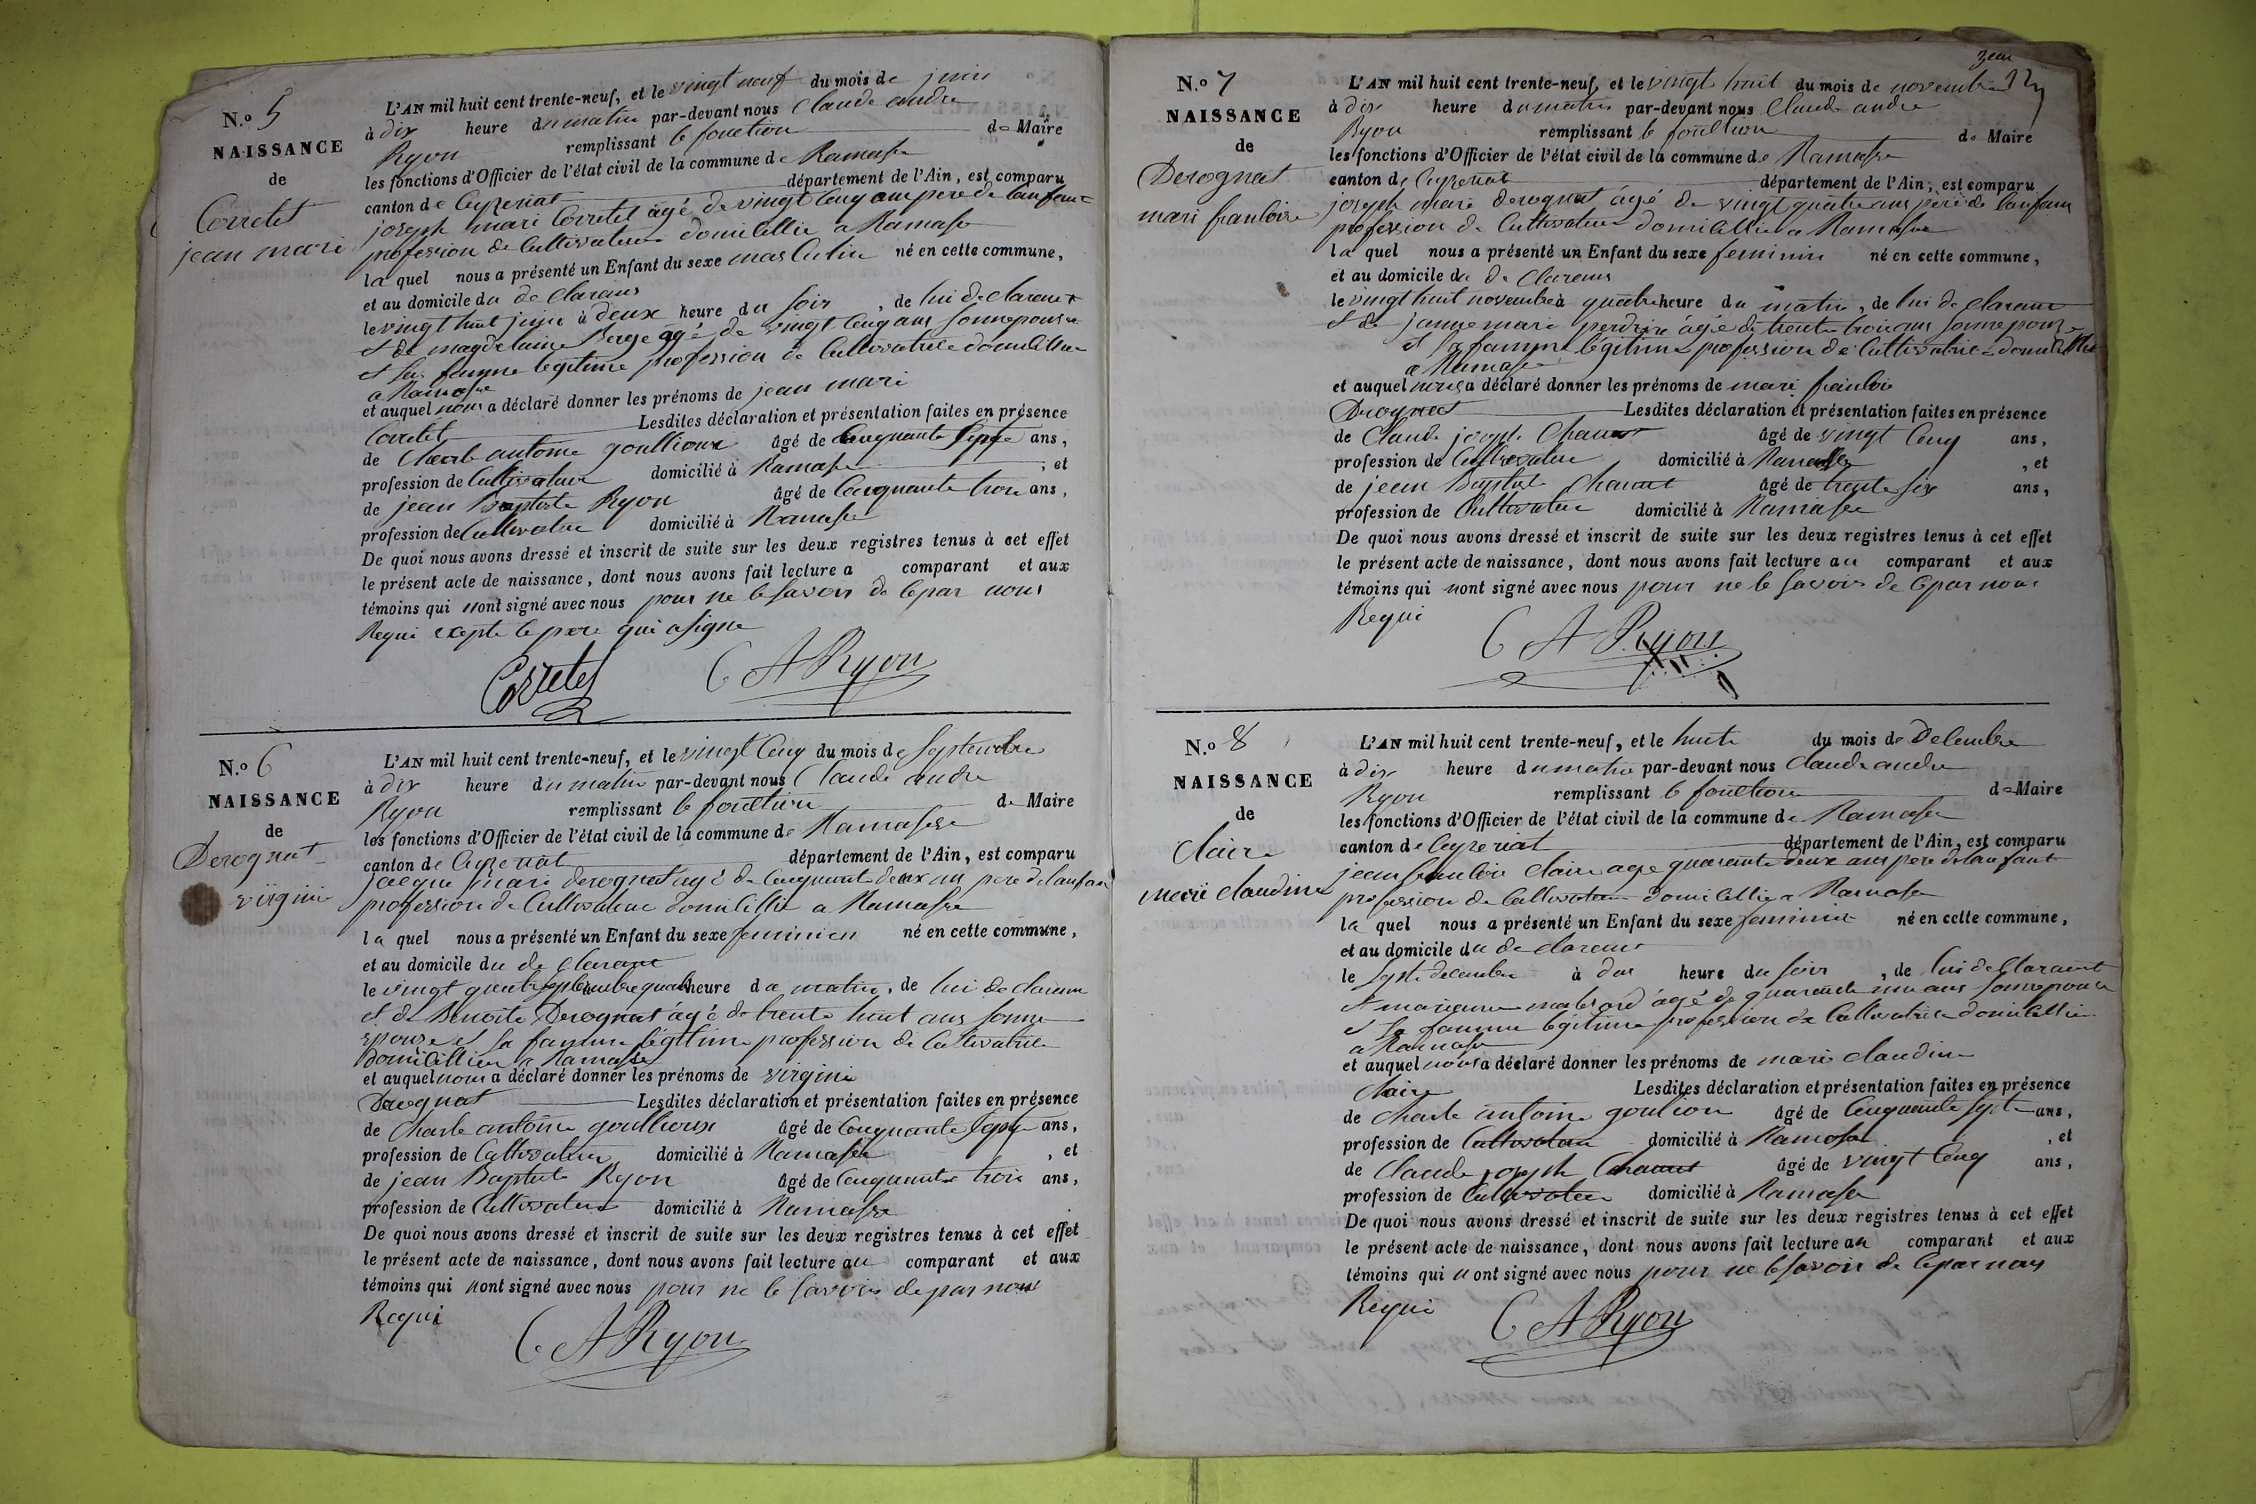 N.o 5
NAISSANCE
de
Corretet
jean mari
L'AN mil huit cent trente-neuf, et le vingt neuf du mois de juin
à dix heure du matin par-devant nous Claude andre
Ryon remplissant le fonction de Maire
les fonctions d'Officier de l'état civil de la commune de Ramasse
canton de Ceyzeriat département de l'Ain, est comparu
joseph mari Corretet agé de vingt cenq ans pere de lanfant
profession de Cultivateur domicillie a Ramasse
la quel nous a présenté un Enfant du sexe masculin né en cette commune,
et au domicile du de Clarans
le vingt huit juin à deux heure du soir, de lui de clarant
et de magdelaine Berge agé de vingt cenq ans sonnepouse
et sa famme legitime profession de Cultivatrice domicillie
a Ramasse
et auquel nous a déclaré donner les prénoms de jean mari
Corretet Lesdites déclaration et présentation faites en présence
de Charle antoine goullioux âgé de Cenquante Septe ans,
profession de Cultivateur domicilié à Ramasse, et
de jean Baptiste Ryon âgé de Cenquante trois ans,
profession de Cultivateur domicilié à Ramasse
De quoi nous avons dressé et inscrit de suite sur les deux registres tenus à cet effet
le présent acte de naissance, dont nous avons fait lecture a comparant et aux
témoins qui nont signé avec nous pour ne le savoir de cepar nous
Requi excepte le pere qui a signe
Corretet C A Ryon
N.o 6
NAISSANCE
de
Derognat
virgini
L'AN mil huit cent trente-neuf, et le vingt cenq du mois de septembre
à dix heure du matin par-devant nous Claude andre
Ryon remplissant le fonction de Maire
les fonctions d'Officier de l'état civil de la commune de Ramasse
canton de Ceyzeriat département de l'Ain, est comparu
jacque mari derognat agé de cenquante deux an pere de lanfant
profession de Cultivateur domicillie a Ramasse
la quel nous a présenté un Enfant du sexe feminien né en cette commune,
et au domicile du de clarant
le vingt quatre septembre quatre heure du matin, de lui de clarant
et de Benoite Derognat agé de trente huit ans sonne
epouse et sa famme légitime profession de Cultivatrice
domicillieu a Ramasse
et auquel nous a déclaré donner les prénoms de virgini
Derognat Lesdites déclaration et présentation faites en présence
de Charle antoine goullioux âgé de Cenquante Septe ans,
profession de Cultivateur domicilié à Ramasse, et
de jean Baptiste Ryon âgé de Cenquante trois ans,
profession de Cultivateur domicilié à Ramasse
De quoi nous avons dressé et inscrit de suite sur les deux registres tenus à cet effet
le présent acte de naissance, dont nous avons fait lecture au comparant et aux
témoins qui nont signé avec nous pour ne le savoir de par nous
Requi
C A Ryon
N.o 7
NAISSANCE
de
Derognat
mari francoise
L'AN mil huit cent trente-neuf, et le vingt huit du mois de novembre
à dix heure du matin par-devant nous Claude andre
Ryon remplissant le fonction de Maire
les fonctions d'Officier de l'état civil de la commune de Ramasse
canton de Ceyzeriat département de l'Ain, est comparu
joseph mari derognat âgé de vingt quatre ans pere de lanfans
profession de Cultivateur domicillie a Ramasse
la quel nous a présenté un Enfant du sexe feminin né en cette commune,
et au domicile du de Clarans
le vingt huit novembre à quatre heure du matin, de lui de clarant
et de janne mari perdrix âgée de trente trois ans sonnepouse
et sa famme légitime profession de Cultivatrice domicillie
a Ramasse
et auquel nous a déclaré donner les prénoms de mari francoise
Derognat Lesdites déclaration et présentation faites en présence
de Claude joseph Chanut âgé de vingt Cenq ans,
profession de Cultivateur domicilié à Ramasse, et
de jean Baptiste Chanut âgé de trente six ans,
profession de Cultivateur domicilié à Ramasse
De quoi nous avons dressé et inscrit de suite sur les deux registres tenus à cet effet
le présent acte de naissance, dont nous avons fait lecture au comparant et aux
témoins qui nont signé avec nous pour ne le savoir de cepar nous
Requi
C A Ryon
N.o 8
NAISSANCE
de
Claire
marie claudine
L'AN mil huit cent trente-neuf, et le huite du mois de Decembre
à dix heure du matin par-devant nous Claude andre
Ryon remplissant le fonction de Maire
les fonctions d'Officier de l'état civil de la commune de Ramasse
canton de Ceyzeriat département de l'Ain, est comparu
jean francois Claire age quarante deux ans pere de lanfant
profession de Cultivateur domicillie a Ramasse
la quel nous a présenté un Enfant du sexe feminin né en cette commune,
et au domicile du de clarans
le septe decembre à deux heure du soir, de lui de clarant
et marianne âgé de quarante un ans sonnepouse
et sa famme légitime profession de Cultivatrice domicillie
a Ramasse
et auquel nous a déclaré donner les prénoms de mari claudine
Claire Lesdites déclaration et présentation faites en présence
de Charle antoine goulliou âgé de Cenquante septe ans,
profession de Cultivateur domicilié à Ramasse, et
de Claude joseph Chanut âgé de vingt Cenq ans,
profession de Cultivateur domicilié à Ramasse
De quoi nous avons dressé et inscrit de suite sur les deux registres tenus à cet effet
le présent acte de naissance, dont nous avons fait lecture au comparant et aux
témoins qui nont signé avec nous pour ne le savoir de cepar nous
Requi
C A Ryon